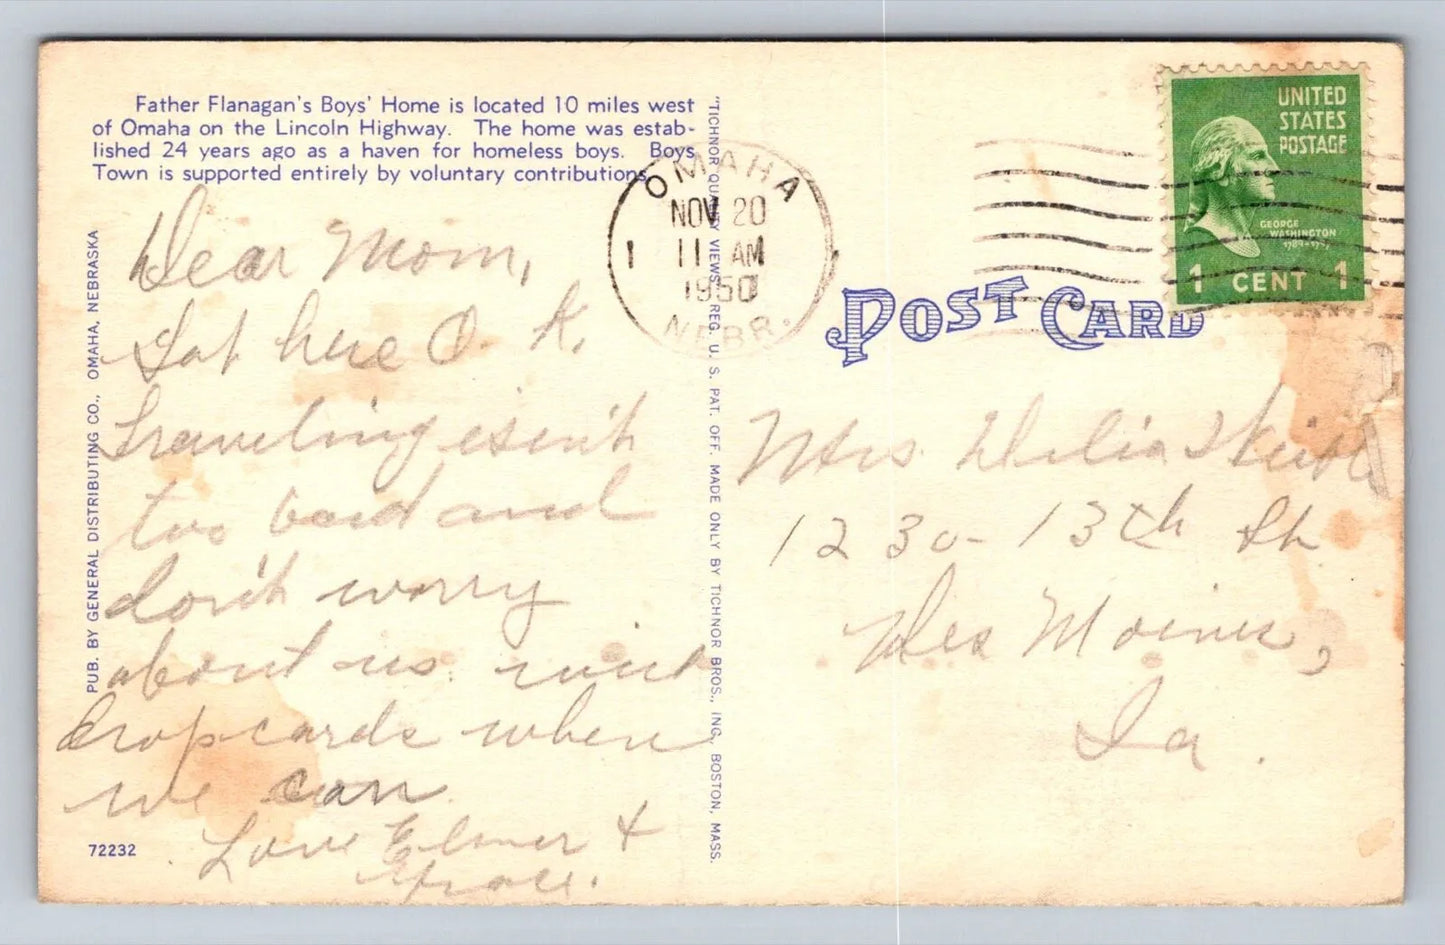 Father Flanagan's Boys' Home is located 10 miles west
of Omaha on the Lincoln Highway. The home was estab-
lished 24 years ago as a haven for homeless boys. Boys
Town is supported entirely by voluntary contributions.
PUB. BY GENERAL DISTRIBUTING CO., OMAHA, NEBRASKA
72232
Dear Mom,
Got here O.K.
Traveling isen't
too baid and
don't worry
about us. will
drop cards when
we can.
Love Elmer &
Grace.
"TICHNOR QUALITY VIEWS," REG. U. S. PAT. OFF. MADE ONLY BY TICHNOR BROS., INC., BOSTON, MASS.
OMAHA
NOV 20
1 11 AM
1950
NEBR.
POST CARD
UNITED
STATES
POSTAGE
GEORGE
WASHINGTON
1789-1797
1 CENT 1
Mrs. Delia
1230-13th St
Des Moines,
Ia.